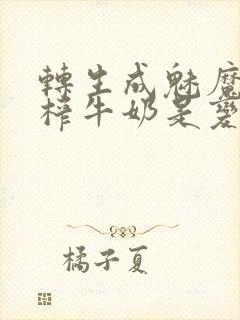 轉生成魅魔
榨牛奶是變
橘子夏